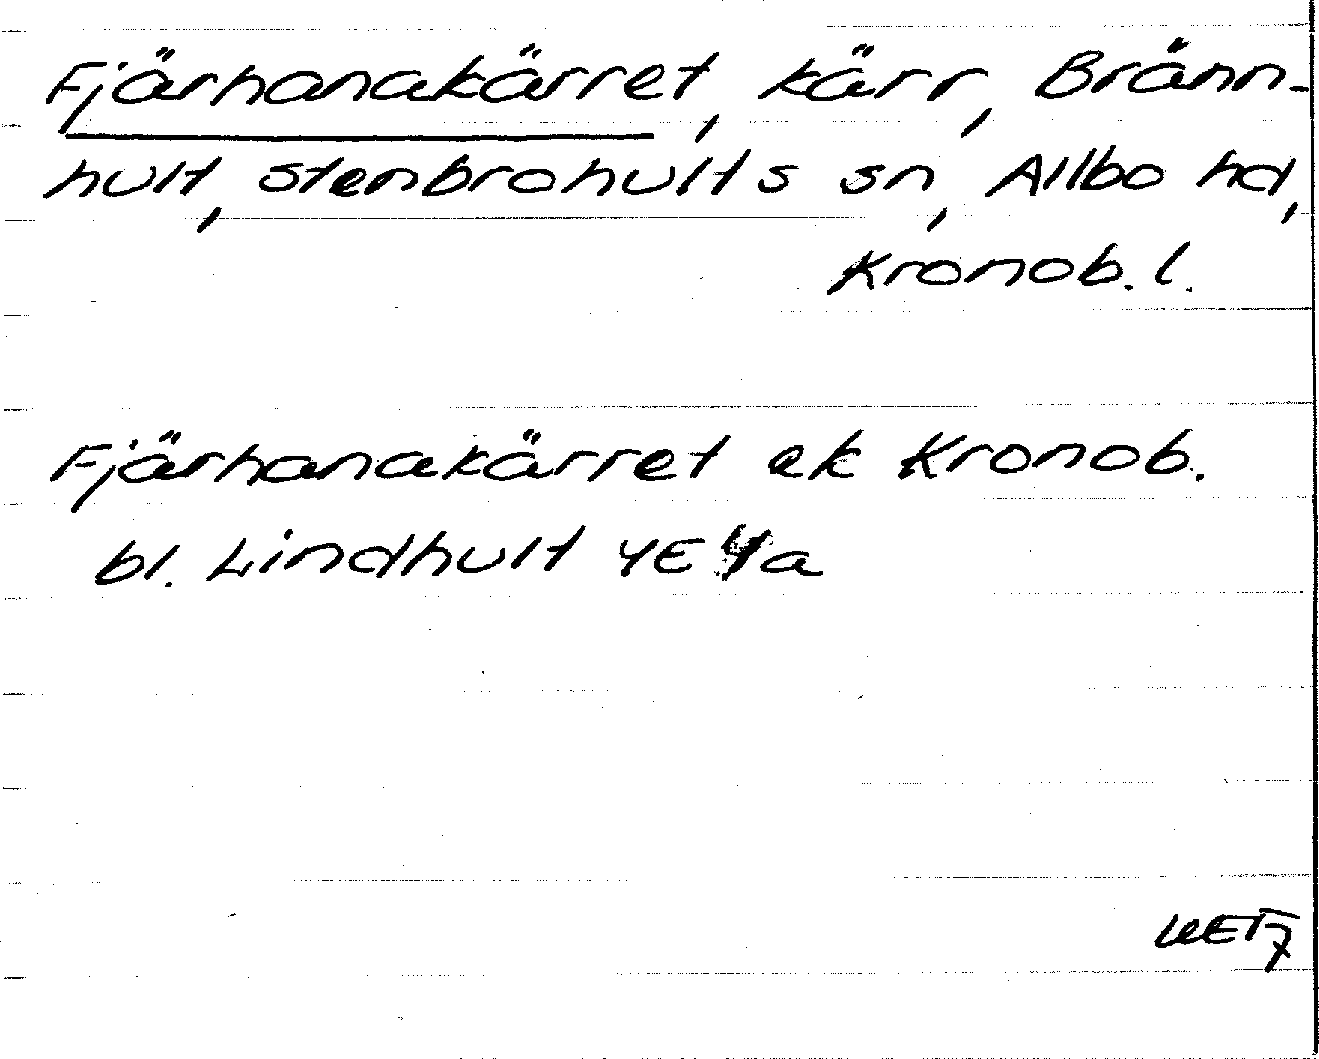 Fjärhanakärret, kärr, Bränn-
hult, Stenbrohults sn, Allbo hd,
Kronob. l.
Fjärhanakärret ek Kronob.
bl. Lindhult 4E 4a